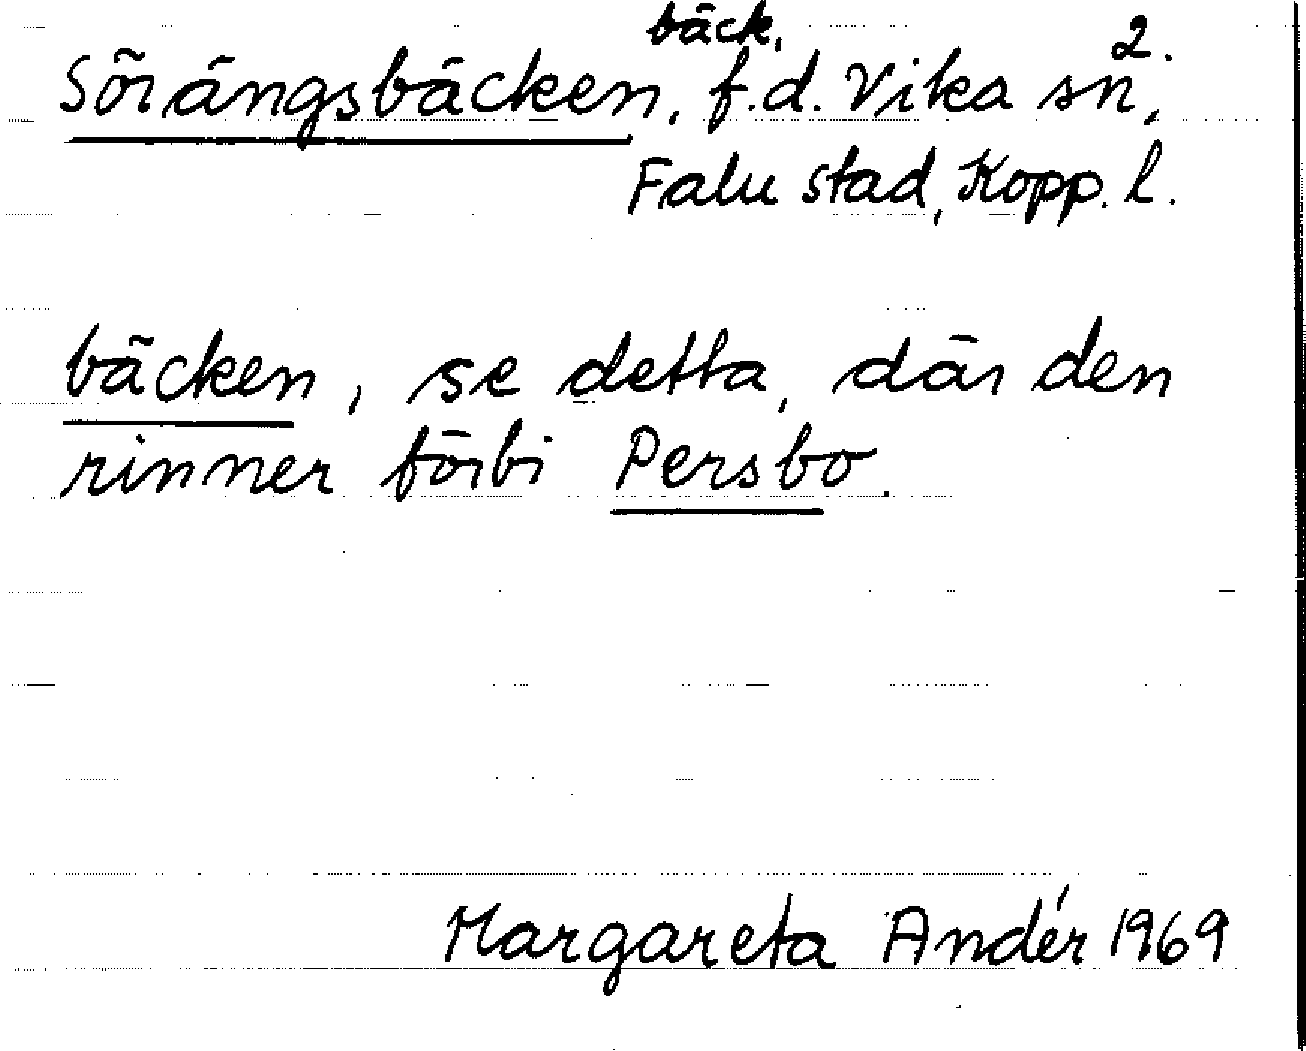 bäck, 2.
Sörängsbäcken, f.d. Vika sn,
Falu stad, Kopp. l.
bäcken, se detta, där den
rinner förbi Persbo.
Margareta Andér 1969